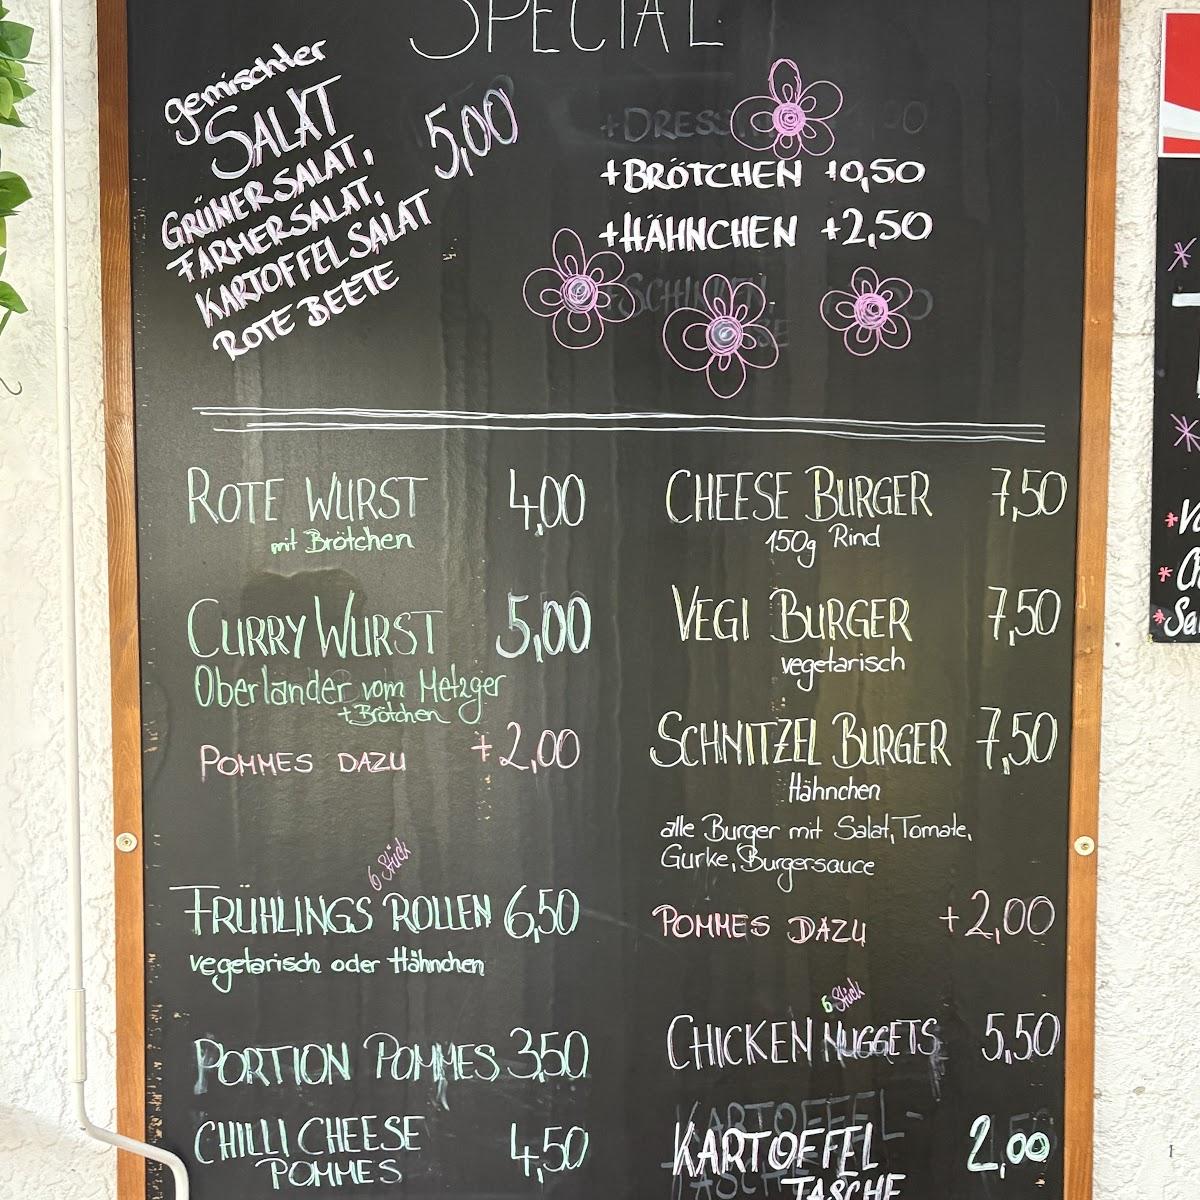 SPECIAL
gemischter
SALAT 5,00
GRÜNER SALAT,
FARMERSALAT,
KARTOFFELSALAT
ROTE BEETE
+BRÖTCHEN +0,50
+HÄHNCHEN +2,50
ROTE WURST 4,00
mit Brötchen
CURRY WURST 5,00
Oberländer vom Metzger
+Brötchen
POMMES DAZU +2,00
6 Stück
FRÜHLINGS ROLLEN 6,50
vegetarisch oder Hähnchen
PORTION POMMES 3,50
CHILLI CHEESE 4,50
POMMES
CHEESE BURGER 7,50
150g Rind
VEGI BURGER 7,50
vegetarisch
SCHNITZEL BURGER 7,50
Hähnchen
alle Burger mit Salat, Tomate,
Gurke, Burgersauce
POMMES DAZU +2,00
6 Stück
CHICKEN NUGGETS 5,50
KARTOFFEL 2,00
TASCHE